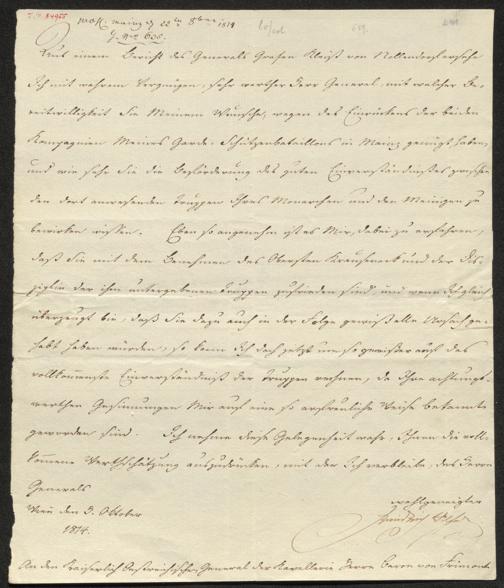 prass. mainz d 22ten 8ber 1814
Aus einem Bericht des Generals Grafen Kleist von Nollendorf ersehe
Ich mit wahrem Vergnügen, sehr werther Herr General, mit welcher Be-
reitwilligkeit Sie Meinem Wunsche, wegen des Einrückens der beiden
Kompagnien Meines Garde-Schützenbataillons in Mainz genügt haben,
und wie sehr Sie die Beförderung des guten Einverständnißes zwischen
den dort anwesenden Truppen Ihres Monarchen und den Meinigen zu
bewirken wissen. Eben so angenehm ist es Mir, dabei zu erfahren,
daß Sie mit dem Benehmen des Obersten Krauseneck und der Dis-
ziplin der ihm untergebenen Truppen zufrieden sind, und wenn Ich gleich
überzeugt bin, daß Sie dazu auch in der Folge gewiß alle Ursach ge-
habt haben würden, so kann Ich doch jetzt um so gewisser auf das
vollkommenste Einverständniß der Truppen rechnen, da Ihre achtungs-
werthen Gesinnungen Mir auf eine so erfreuliche Weise bekannt
geworden sind. Ich nehme diese Gelegenheit wahr, Ihnen die voll-
kommene Werthschätzung auszudrücken, mit der Ich verbleibe, des Herrn
Generals
Wien den 9. Oktober
1814.
wohlgeneigter
Friedrich Wilhelm
An den Kaiserlich Oestreichischen General der Kavallerie Herrn Baron von Frimont